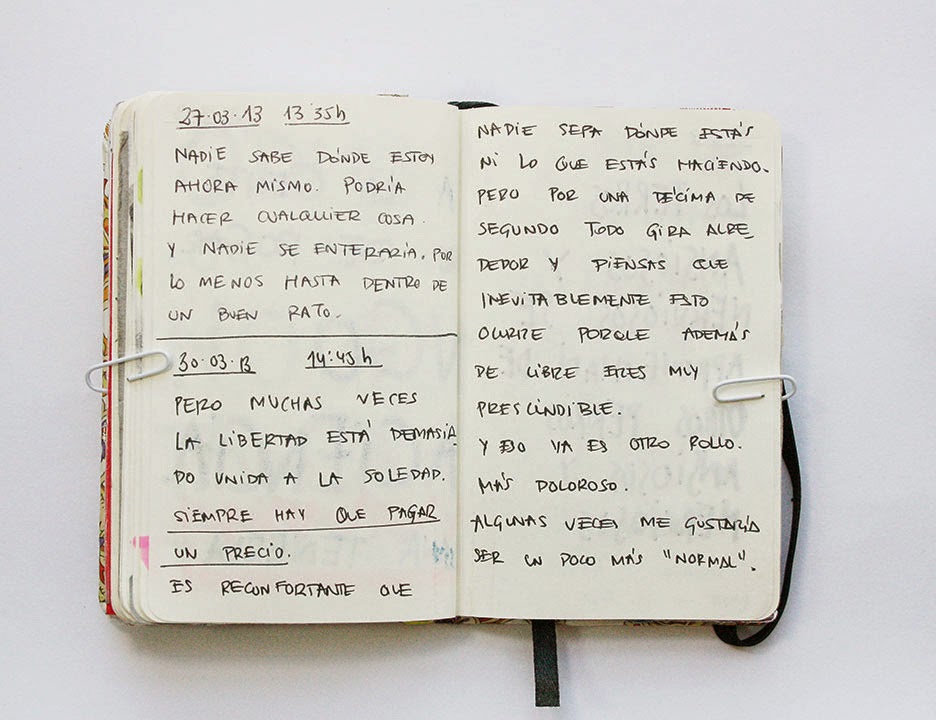 27·03·13 13 35h
NADIE SABE DÓNDE ESTOY
AHORA MISMO. PODRÍA
HACER CUALQUIER COSA.
Y NADIE SE ENTERARÍA. POR
LO MENOS HASTA DENTRO DE
UN BUEN RATO.
30·03·13 14:45h
PERO MUCHAS VECES
LA LIBERTAD ESTÁ DEMASIA
DO UNIDA A LA SOLEDAD.
SIEMPRE HAY QUE PAGAR
UN PRECIO.
ES RECONFORTANTE QUE
NADIE SEPA DÓNDE ESTÁS
NI LO QUE ESTÁS HACIENDO.
PERO POR UNA DÉCIMA DE
SEGUNDO TODO GIRA ALRE_
DEDOR Y PIENSAS QUE
INEVITABLEMENTE ESTO
OCURRE PORQUE ADEMÁS
DE LIBRE ERES MUY
PRESCINDIBLE.
Y ESO YA ES OTRO ROLLO.
MÁS DOLOROSO.
ALGUNAS VECES ME GUSTARÍA
SER UN POCO MÁS "NORMAL".